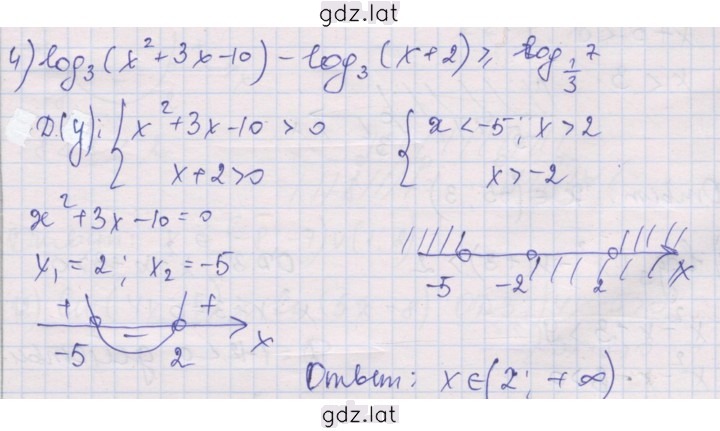 gdz.lat
4) log₃(x²+3x-10) - log₃(x+2) ≥ log_{1/3} 7
D(y): { x²+3x-10 > 0 { x < -5; x > 2
x+2>0 x > -2
x²+3x-10=0
x₁ = 2; x₂ = -5
-5 -2 2 x
+ - +
-5 2 x
Ответ: x∈(2; +∞).
gdz.lat